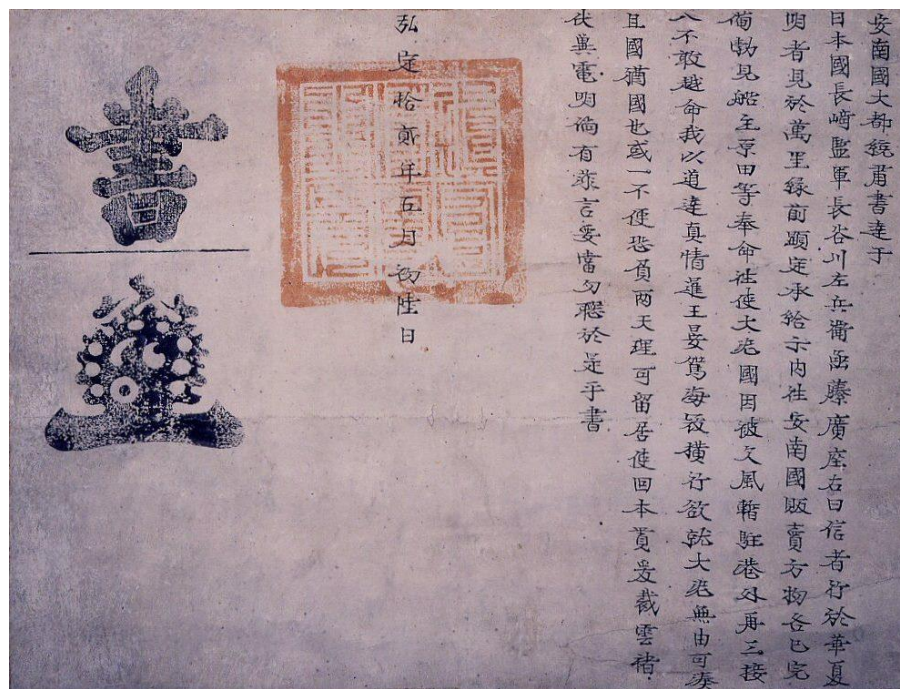 安南國大都統甫書達于
日本國長崎監軍長谷川左兵衛藤廣座右曰信者行於華夏
明者見於萬里緣前顕定承給示内往安南國販賣方物各已完
備勅見船主原田等奉命往使大國因被文風暫駐港外再三接
人不敢越命我以道達真情進王晏駕海衣横行欲就大無由可奏
且國猶國也或一不便恐負兩天理可留居使回本貫爰裁雲褚
伏冀電明倘有詐言妄當勿聽於是乎書
弘定拾貳年五月初陸日
書